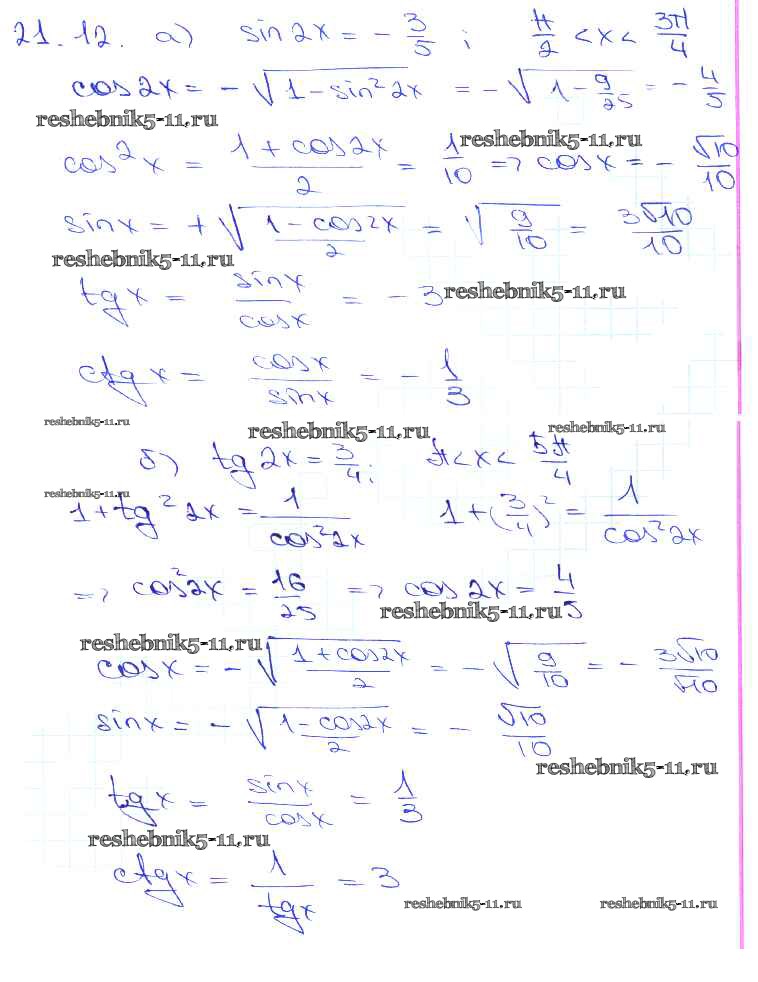 21.12. а) sin2x = - 3/5 ; π/2 < x < 3π/4
cos2x = - √(1 - sin²2x) = - √(1 - 9/25) = - 4/5
reshebnik5-11.ru
reshebnik5-11.ru
cos²x = (1 + cos2x)/2 = 1/10 => cosx = - √10/10
sinx = + √((1 - cos2x)/2) = √(9/10) = 3√10/10
reshebnik5-11.ru
tgx = sinx/cosx = - 3
reshebnik5-11.ru
ctgx = cosx/sinx = - 1/3
reshebnik5-11.ru
reshebnik5-11.ru
reshebnik5-11.ru
б) tg2x = 3/4; π < x < 5π/4
reshebnik5-11.ru
1 + tg²2x = 1/cos²2x 1 + (3/4)² = 1/cos²2x
=> cos²2x = 16/25 => cos2x = 4/5
reshebnik5-11.ru
reshebnik5-11.ru
cosx = - √((1 + cos2x)/2) = - √(9/10) = - 3√10/√10
sinx = - √((1 - cos2x)/2) = - √10/10
reshebnik5-11.ru
tgx = sinx/cosx = 1/3
reshebnik5-11.ru
ctgx = 1/tgx = 3
reshebnik5-11.ru
reshebnik5-11.ru